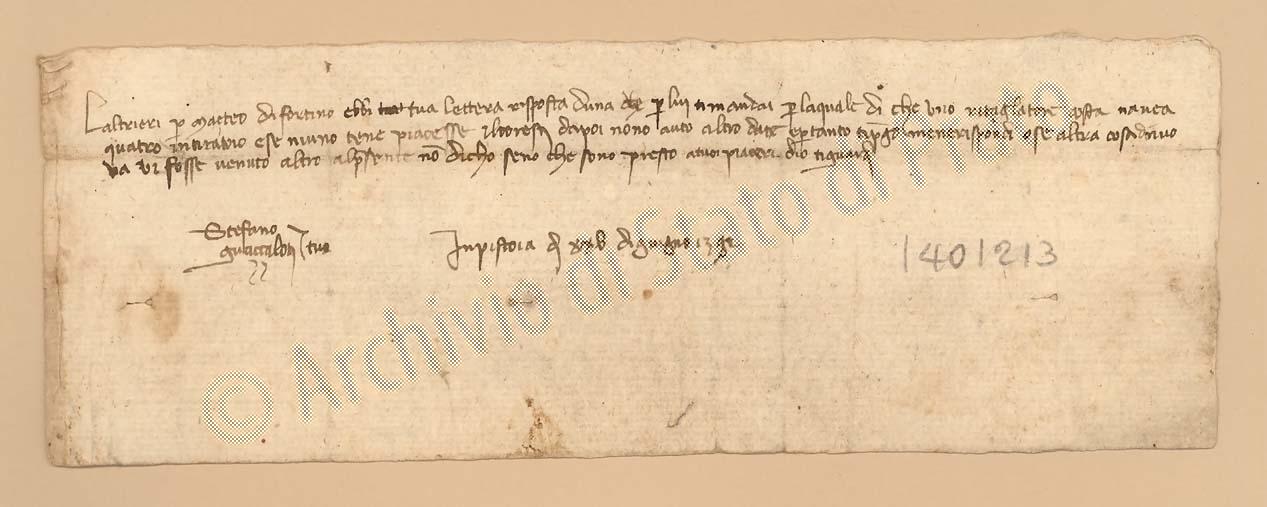 Laltrieri p Matteo di fortino ebbi tua lettera risposta duna che p lui ti mandai p laquale di che uno ritagliatore costa navea
quatro in tiratoio e se niuno tene piacesse dapoi nono auto altro da te e ptanto tipgo menerispondi o se altra cosa di nuo
va vi fosse venuto altro alpsente nō dicho seno che sono presto a tuoi piaceri dio ti guardi
Stefano
guazzalotti tuo
In pistoia di xxv di giugno 1392
1401213
© Archivio di Stato di Prato